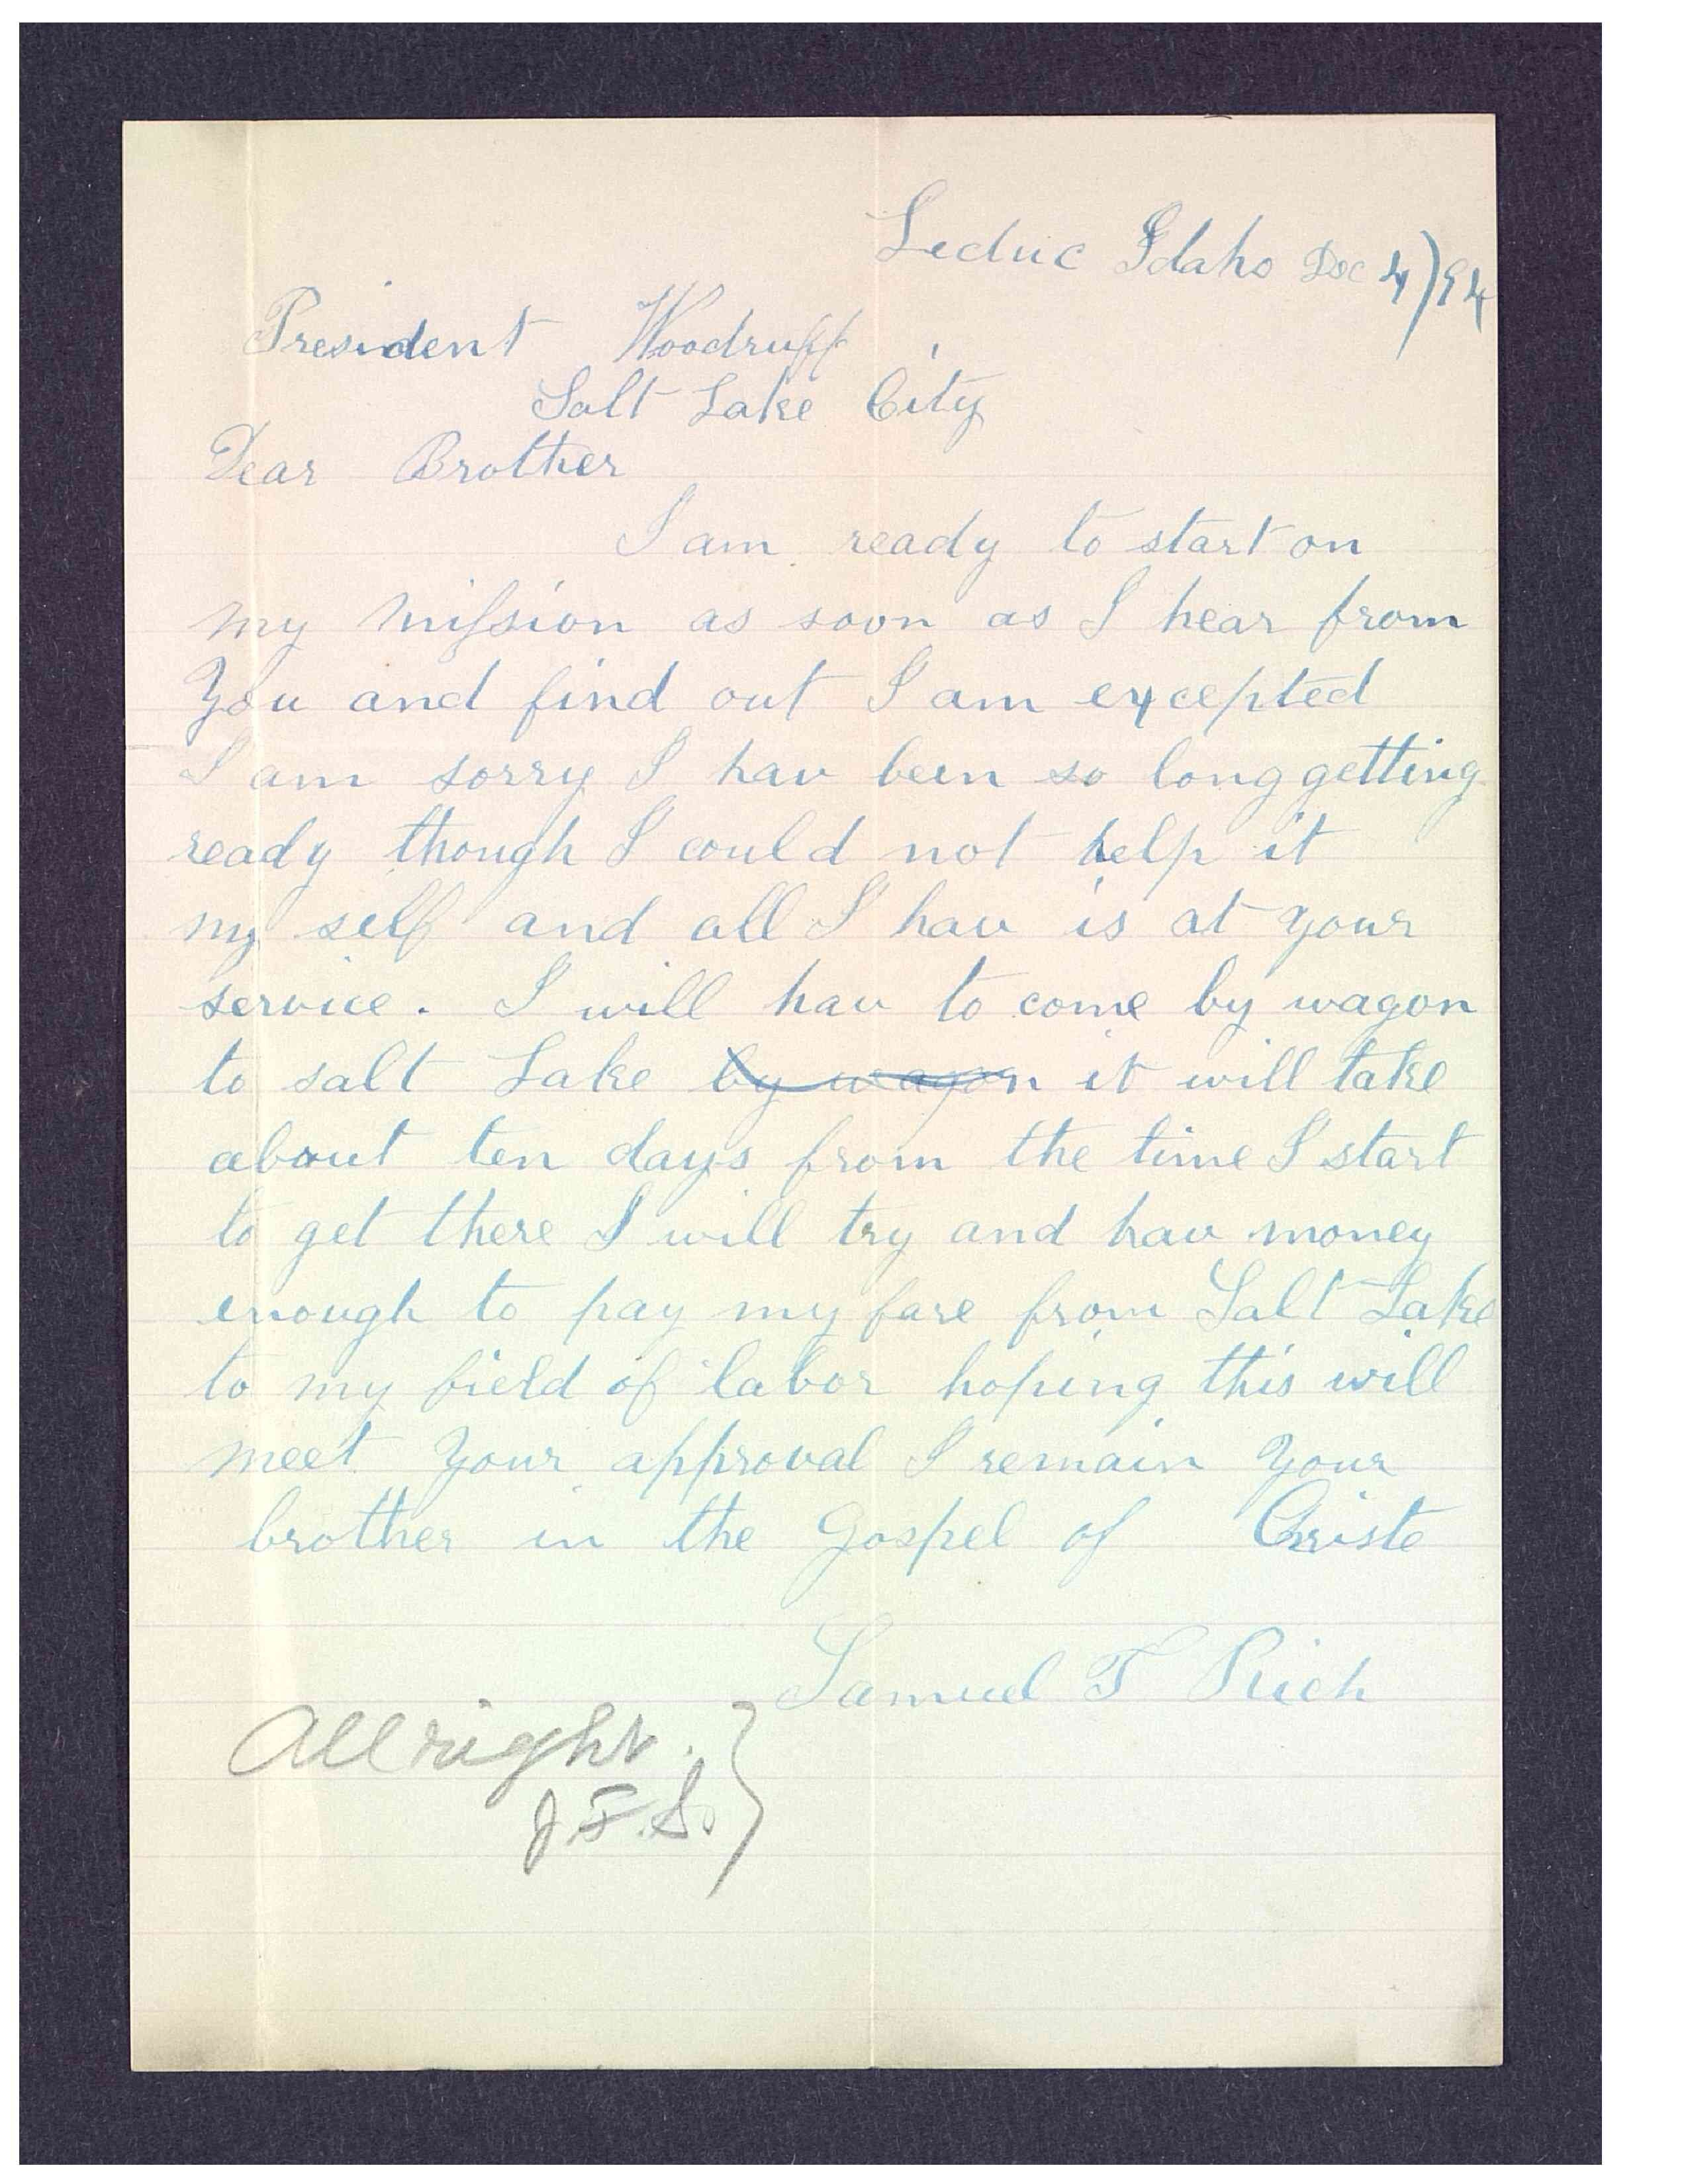 Leduc Idaho Dec 4)94
President Woodruff
Salt Lake City
Dear Brother
I am ready to start on
my mission as soon as I hear from
You and find out I am excepted
I am sorry I hav been so long getting
ready though I could not help it
my self and all I hav is at your
service. I will hav to come by wagon
to salt Lake by wagon it will take
about ten days from the time I start
to get there I will try and hav money
enough to pay my fare from Salt Lake
to my field of labor hoping this will
meet Your approval I remain Your
brother in the Gospel of Christe
Samuel T Rich
All right.
J. F. S.